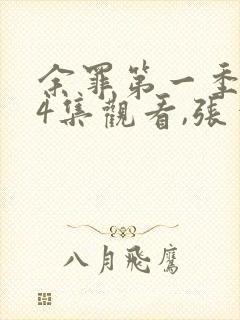 余罪第一季
4集觀看,張
八月飛鷹